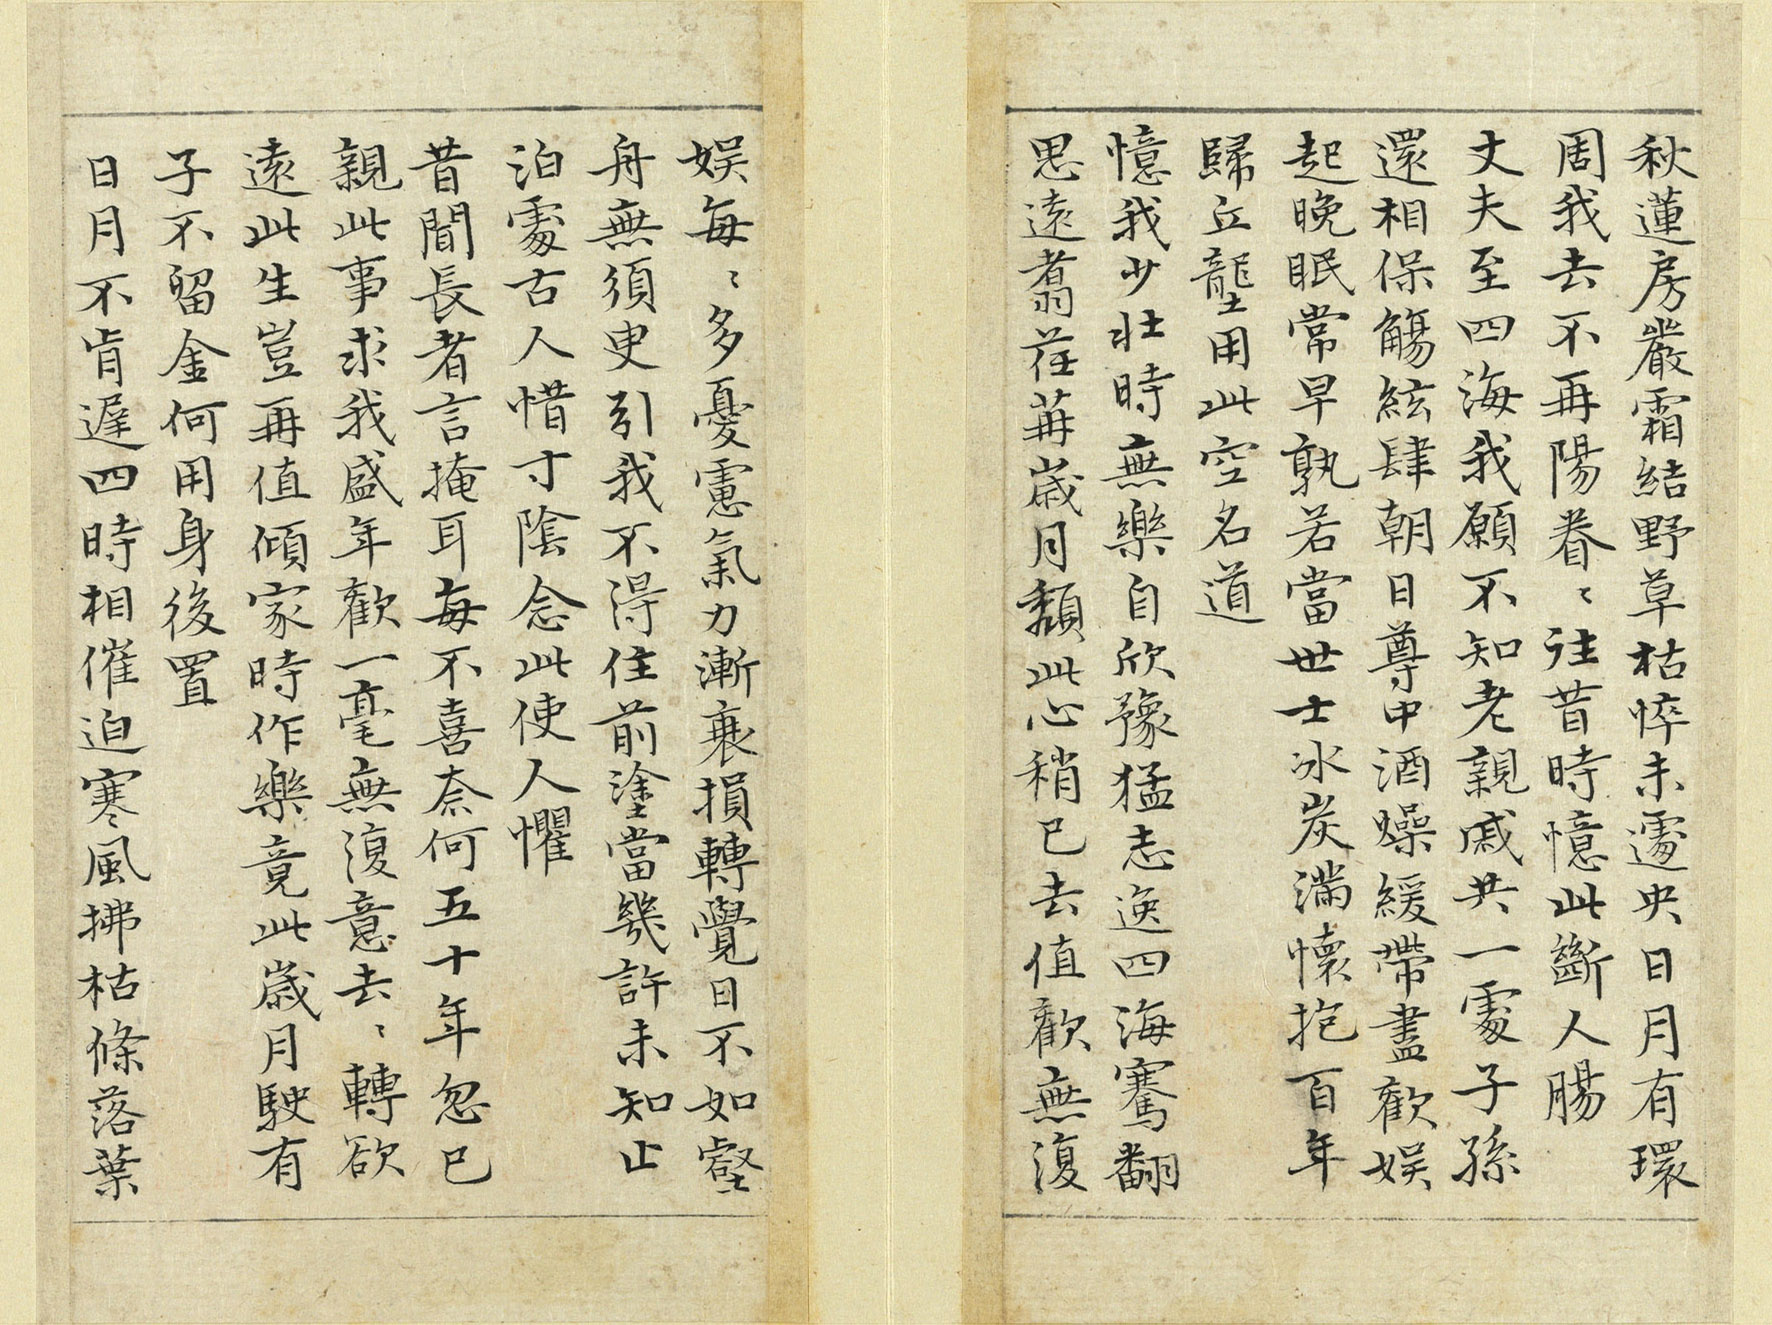 秋蓮房嚴霜結野草枯悴未遽央日月有環
周我去不再陽眷〻往昔時憶此斷人腸
丈夫至四海我願不知老親戚共一處子孫
還相保觴絃肆朝日尊中酒燥緩帶盡歡娛
起晚眠常早孰若當世士冰炭滿懷抱百年
歸丘壟用此空名道
憶我少壯時無樂自欣豫猛志逸四海騫翮
思遠翥荏苒歲月頹此心稍已去值歡無復
娛每〻多憂慮氣力漸衰損轉覺日不如壑
舟無須臾引我不得住前塗當幾許未知止
泊處古人惜寸陰念此使人懼
昔聞長者言掩耳每不喜奈何五十年忽已
親此事求我盛年歡一毫無復意去〻轉欲
遠此生豈再值傾家時作樂竟此歲月駛有
子不留金何用身後置
日月不肯遲四時相催迫寒風拂枯條落葉